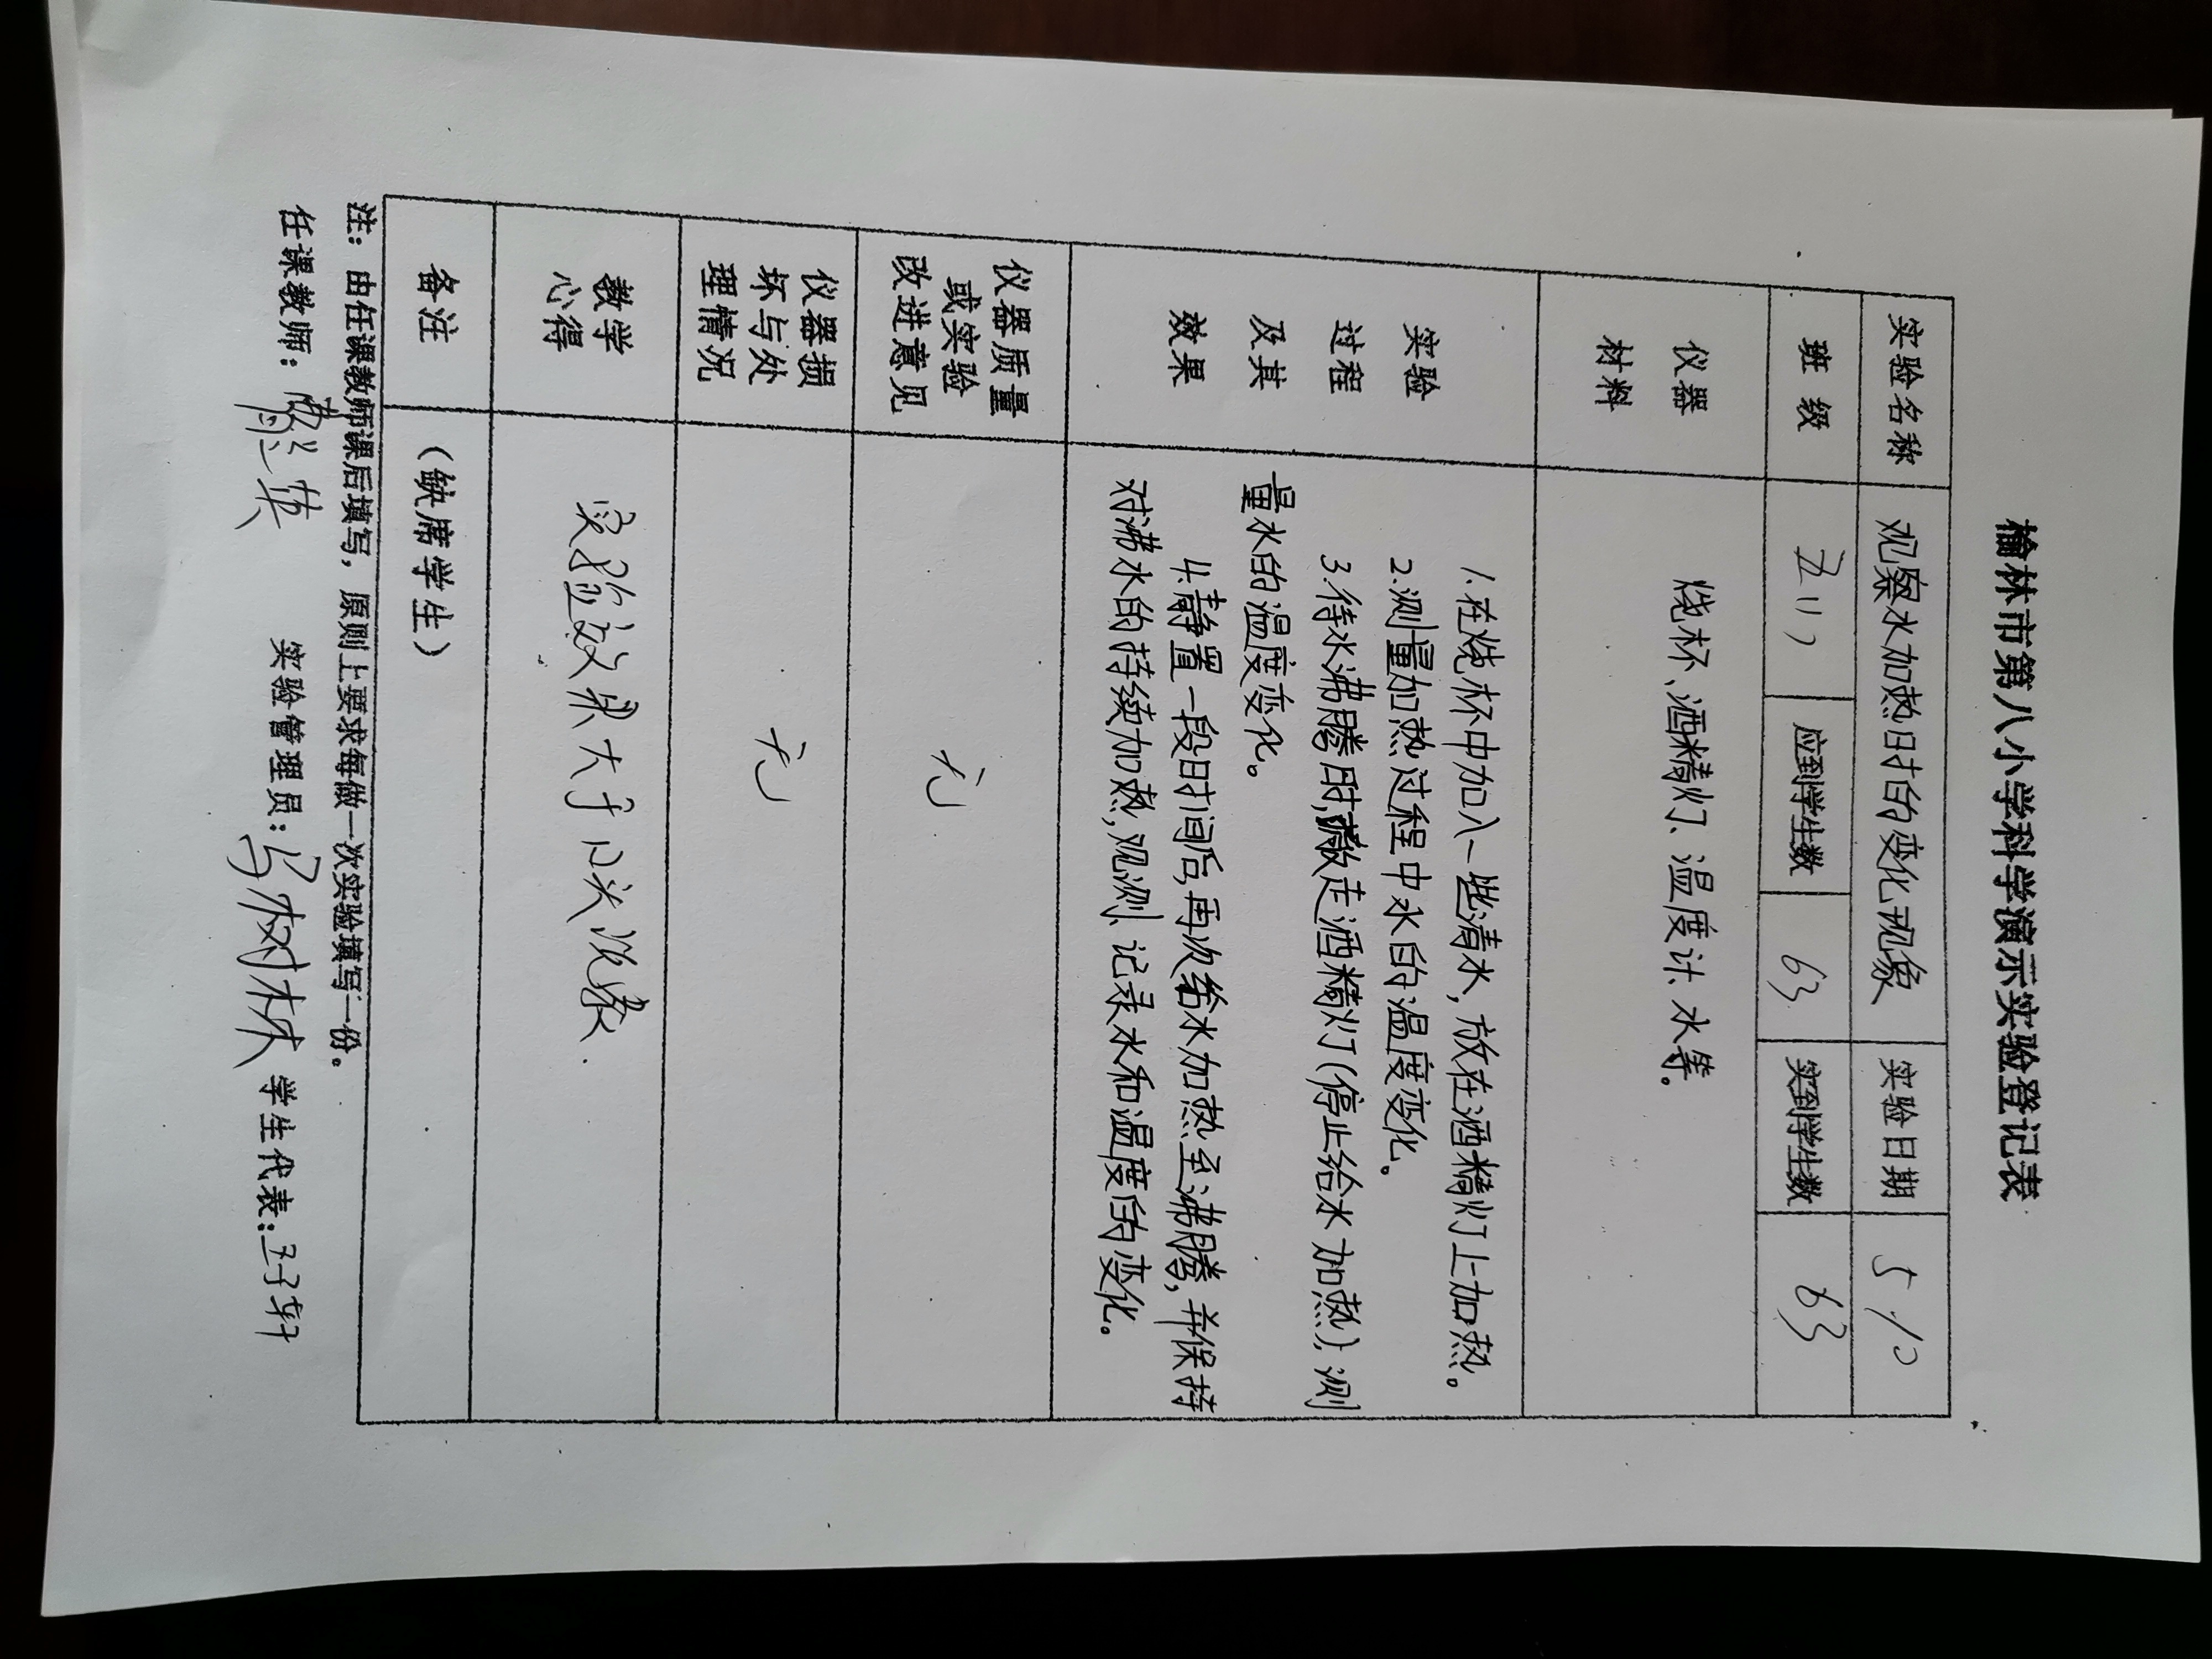 榆林市第八小学科学演示实验登记表
实验名称 观察水加热时的变化现象 实验日期 5.10
班 级 五(1) 应到学生数 63 实到学生数 63
仪器
材料
烧杯、酒精灯、温度计、水等。
实验
过程
及其
效果
1.在烧杯中加入一些清水，放在酒精灯上加热。
2.测量加热过程中水的温度变化。
3.待水沸腾时,撤走酒精灯(停止给水加热),测
量水的温度变化。
4.静置一段时间后,再次给水加热至沸腾,并保持
对沸水的持续加热,观测、记录水和温度的变化。
仪器质量
或实验
改进意见
无
仪器损
坏与处
理情况
无
教学
心得
实验效果大于口头说教.
备注 （缺席学生）
注：由任课教师课后填写，原则上要求每做一次实验填写一份。
任课教师： 实验管理员：马树林 学生代表：王子轩